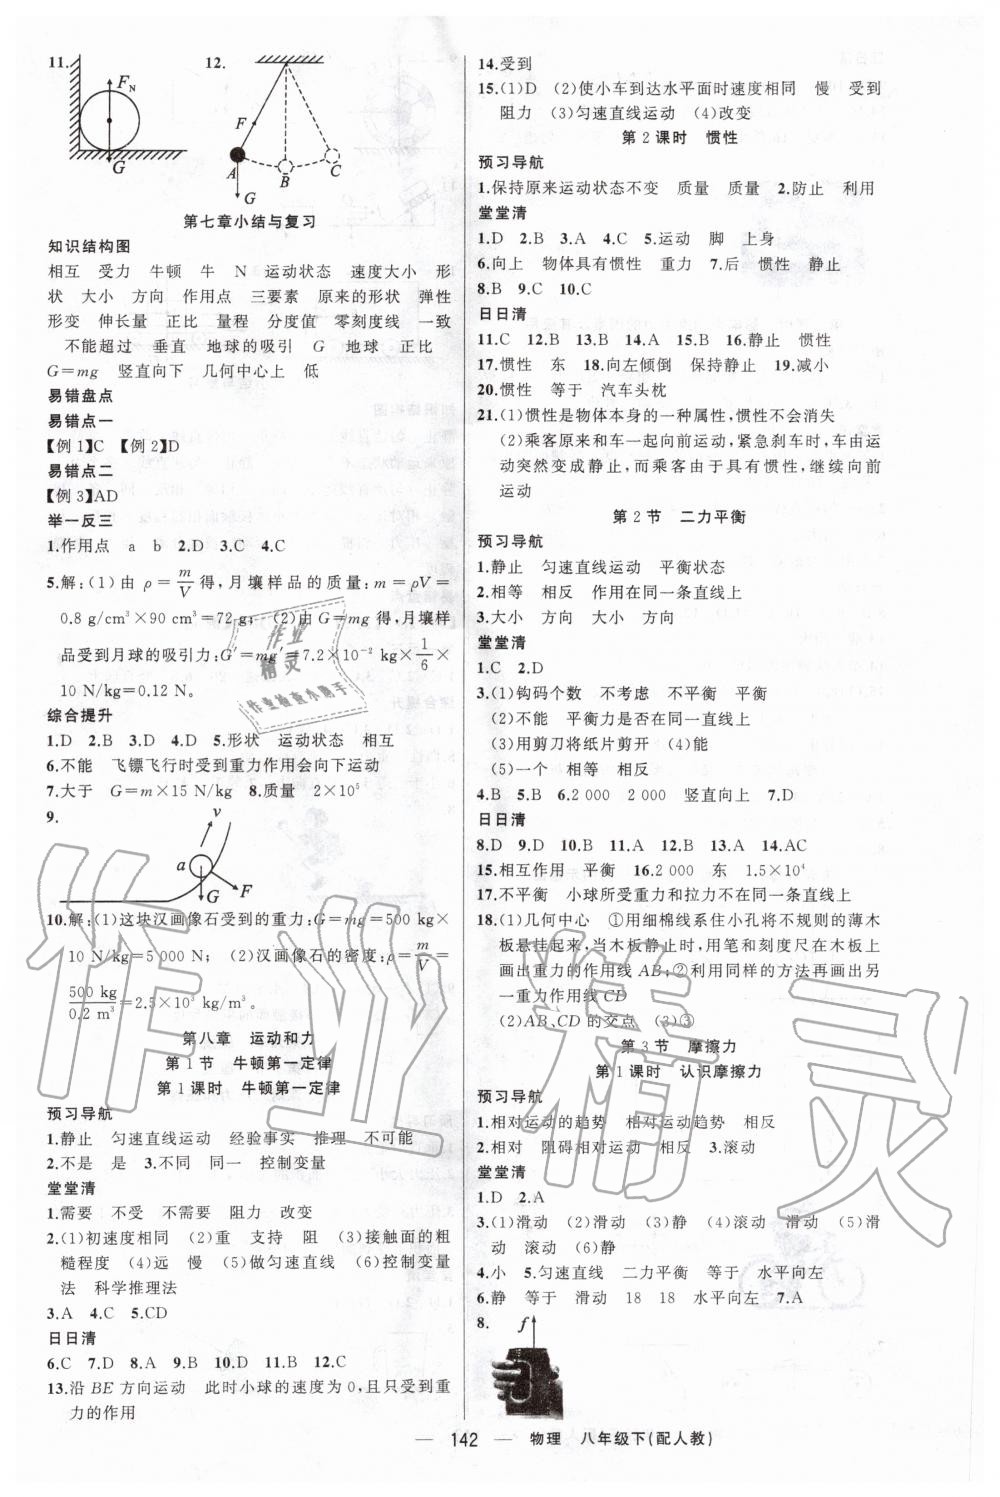 11.
F_N
G
12.
F
A
B
C
G
第七章小结与复习
知识结构图
相互　受力　牛顿　牛　N　运动状态　速度大小　形
状　大小　方向　作用点　三要素　原来的形状　弹性
形变　伸长量　正比　量程　分度值　零刻度线　一致
不能超过　垂直　地球的吸引　G　地球　正比
G=mg　竖直向下　几何中心上　低
易错盘点
易错点一
【例1】C　【例2】D
易错点二
【例3】AD
举一反三
1.作用点　a　b　2.D　3.C　4.C
5.解:(1)由 ρ=m/V 得,月壤样品的质量:m=ρV=
0.8 g/cm³×90 cm³=72 g;　(2)由G=mg得,月壤样
品受到月球的吸引力:G′=mg′=7.2×10⁻² kg×1/6×
10 N/kg=0.12 N。
综合提升
1.D　2.B　3.D　4.D　5.形状　运动状态　相互
6.不能　飞镖飞行时受到重力作用会向下运动
7.大于　G=m×15 N/kg　8.质量　2×10⁵
9.
v
a
G
F
10.解:(1)这块汉画像石受到的重力:G=mg=500 kg×
10 N/kg=5 000 N;　(2)汉画像石的密度:ρ=m/V=
500 kg/0.2 m³=2.5×10³ kg/m³。
第八章　运动和力
第1节　牛顿第一定律
第1课时　牛顿第一定律
预习导航
1.静止　匀速直线运动　经验事实　推理　不可能
2.不是　是　3.不同　同一　控制变量
堂堂清
1.需要　不受　不需要　阻力　改变
2.(1)初速度相同　(2)重　支持　阻　(3)接触面的粗
糙程度　(4)远　慢　(5)做匀速直线　(6)控制变量
法　科学推理法
3.A　4.C　5.CD
日日清
6.C　7.D　8.A　9.B　10.D　11.B　12.C
13.沿BE方向运动　此时小球的速度为0,且只受到重
力的作用
14.受到
15.(1)D　(2)使小车到达水平面时速度相同　慢　受到
阻力　(3)匀速直线运动　(4)改变
第2课时　惯性
预习导航
1.保持原来运动状态不变　质量　质量　2.防止　利用
堂堂清
1.D　2.B　3.A　4.C　5.运动　脚　上身
6.向上　物体具有惯性　重力　7.后　惯性　静止
8.B　9.C　10.C
日日清
11.C　12.B　13.B　14.A　15.B　16.静止　惯性
17.惯性　东　18.向左倾倒　保持静止　19.减小
20.惯性　等于　汽车头枕
21.(1)惯性是物体本身的一种属性,惯性不会消失
(2)乘客原来和车一起向前运动,紧急刹车时,车由运
动突然变成静止,而乘客由于具有惯性,继续向前
运动
第2节　二力平衡
预习导航
1.静止　匀速直线运动　平衡状态
2.相等　相反　作用在同一条直线上
3.大小　方向　大小　方向
堂堂清
1.C　2.D
3.(1)钩码个数　不考虑　不平衡　平衡
(2)不能　平衡力是否在同一直线上
(3)用剪刀将纸片剪开　(4)能
(5)一个　相等　相反
4.B　5.B　6.2 000　2 000　竖直向上　7.D
日日清
8.D　9.D　10.B　11.A　12.B　13.A　14.AC
15.相互作用　平衡　16.2 000　东　1.5×10⁴
17.不平衡　小球所受重力和拉力不在同一条直线上
18.(1)几何中心　①用细棉线系住小孔将不规则的薄木
板悬挂起来,当木板静止时,用笔和刻度尺在木板上
画出重力的作用线AB;②利用同样的方法再画出另
一重力作用线CD
(2)AB、CD的交点　(3)③
第3节　摩擦力
第1课时　认识摩擦力
预习导航
1.相对运动的趋势　相对运动趋势　相反
2.相对　阻碍相对运动　相反　3.滚动
堂堂清
1.D　2.A
3.(1)滑动　(2)滑动　(3)静　(4)滚动　滑动　(5)滑
动　滚动　(6)静
4.小　5.匀速直线　二力平衡　等于　水平向左
6.静　等于　滑动　18　18　水平向左　7.A
8.
f
— 142 —　物理　八年级下(配人教)
作业精灵
作业检查小助手
作业精灵